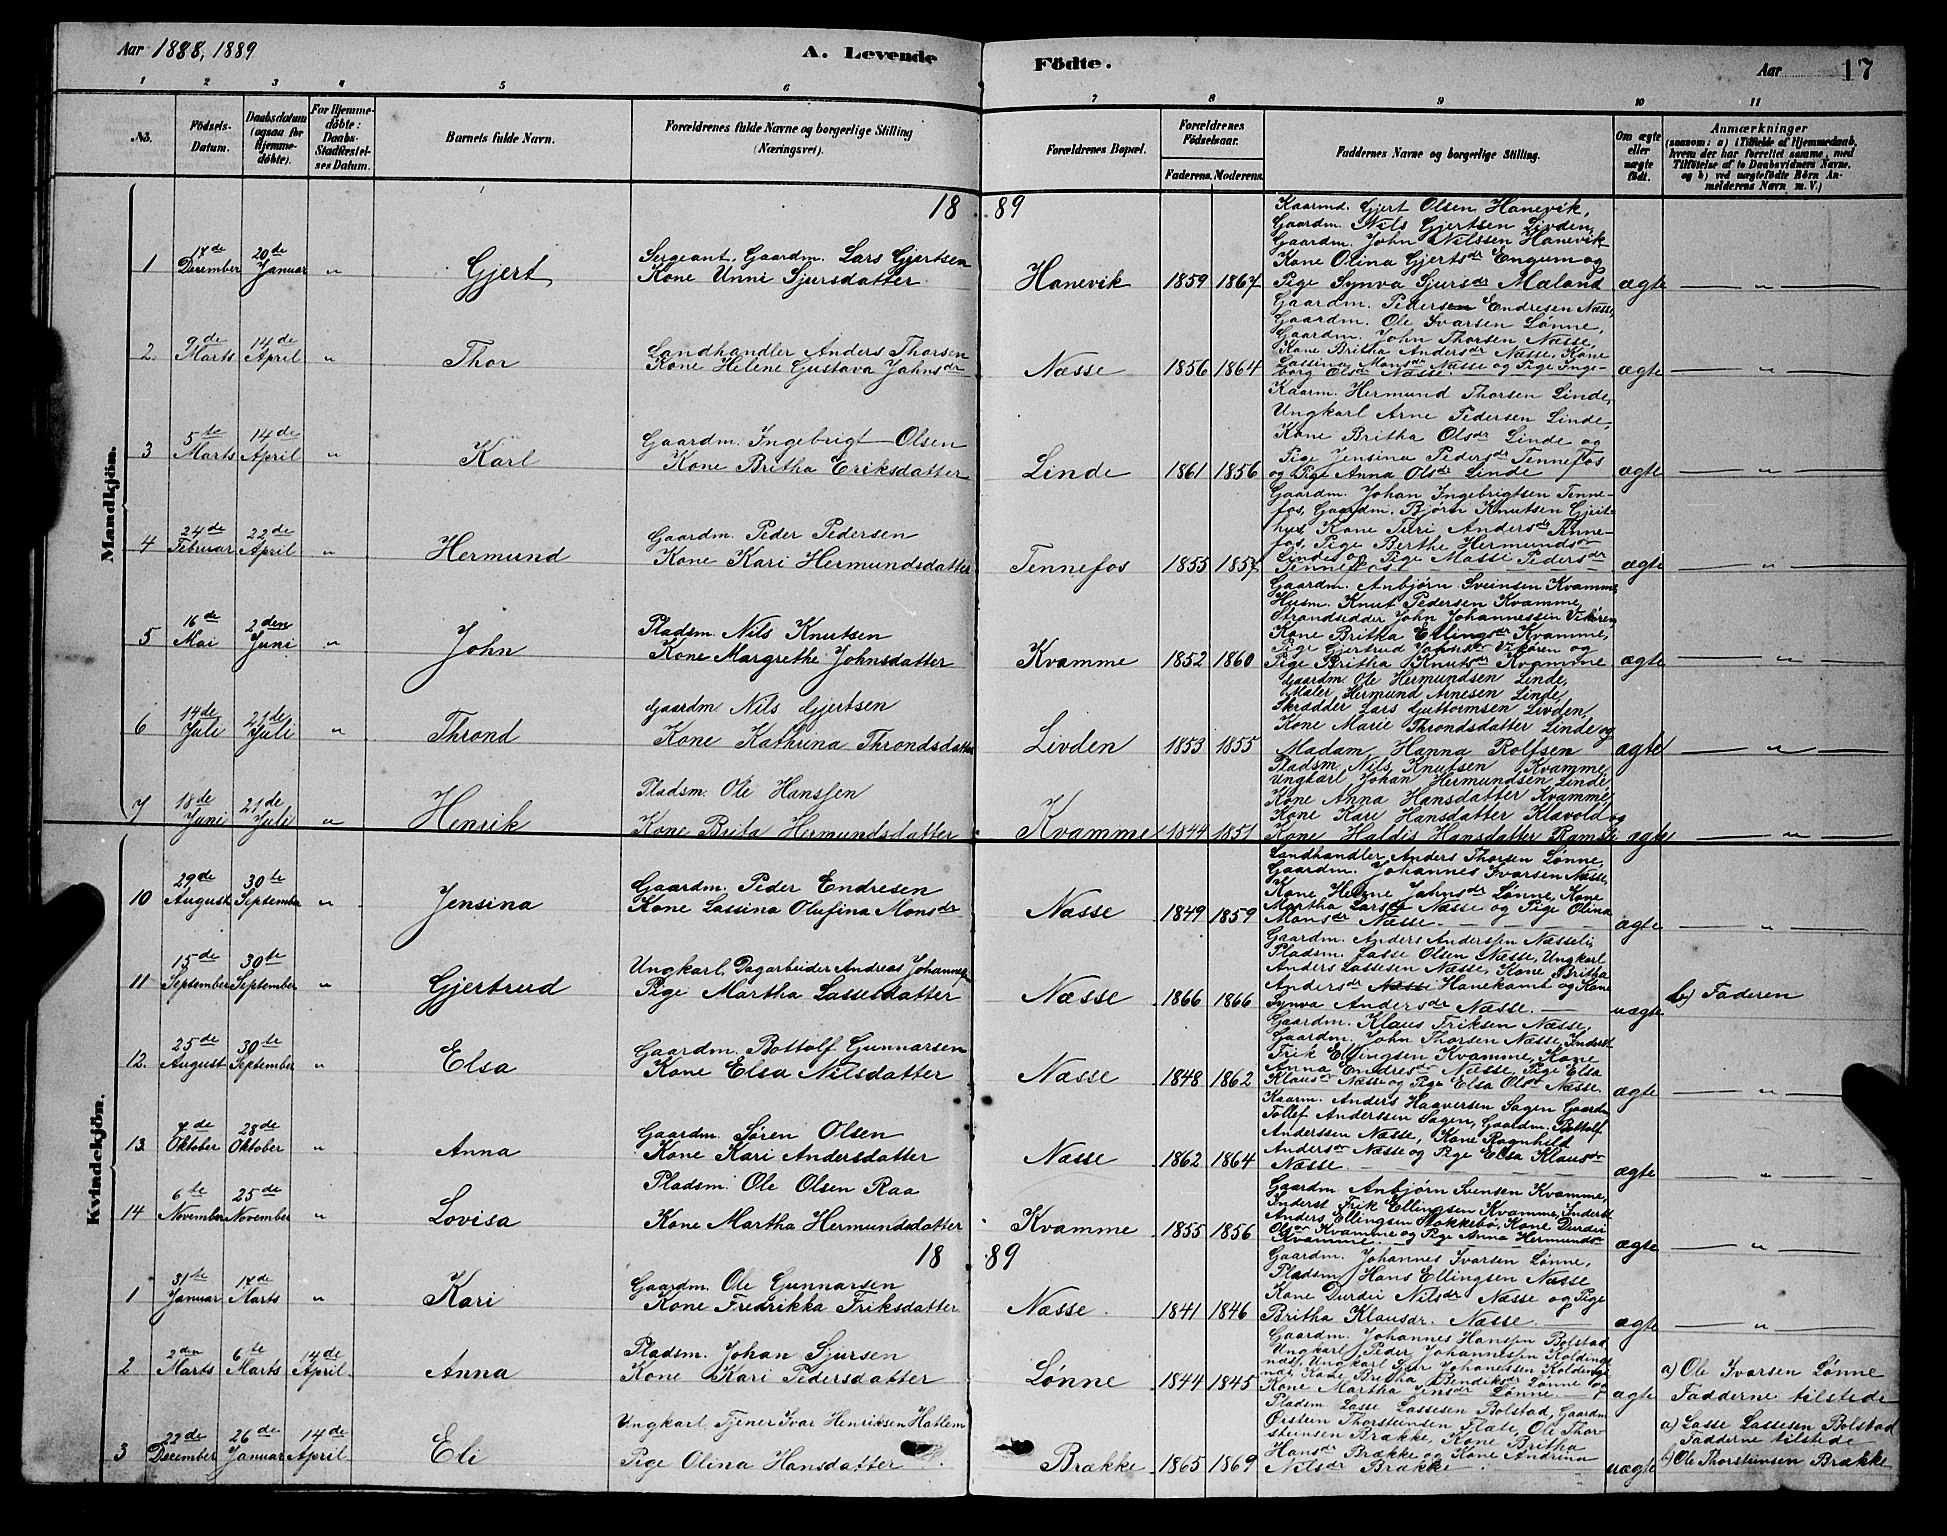 Aar 1888, 1889
A. Levende
Födte.
Aar 17
1 2 3 4 5 6 7 8 9 10 11
No.
Födsels-
Datum.
Daabsdatum
(ogsaa for
Hjemme-
döbte).
For Hjemme-
döbte:
Daabs-
Stadfæstel-
ses Datum.
Barnets fulde Navn.
Forældrenes fulde Navne og borgerlige Stilling
(Næringsvei).
Forældrenes Bopæl.
Forældrenes
Födselsaar.
Faderens. Moderens.
Faddernes Navne og borgerlige Stilling.
Om ægte
eller
uægte
födt.
Anmærkninger
(saasom: a) i Tilfælde af Hjemmedaab,
hvem der har forrettet samme, med
Tilföielse af to Daabsvidners Navne,
og b) ved uægtefödte Börn An-
melderens Navn m. V.)
Mandkjön.
18 89
1
17de December
20de Januar
"
Gjert
Sergeant, Gaardm. Lars Gjertsen
Kone Unni Sjursdatter
Hanevik
1859 1867
Kaarmd. Gjert Olsen Hanevik,
Gaardm. Nils Gjertsen Livden,
Gaardm. John Nilssen Hanevik
Kone Olina Gjertsdr Engum og
Pige Synva Sjursdr Mæland
ægte
"
2.
9de Marts
14de April
"
Thor
Landhandler Anders Thorsen
Kone Helene Gustava Jahnsdr
Næsse
1856 1864
Gaardm. Peder Endresen Næsse,
Gaardm. Ole Ivarsen Lønne,
Gaardm. John Thorsen Næsse,
Kone Britha Andersdr Næsse, Kone
Lassina Monsdr Næsse og Pige Inge-
borg Olsdr Næsse.
ægte
"
3
5te Marts
14de April
"
Karl
Gaardm. Ingebrigt Olsen
Kone Britha Eriksdatter
Linde
1861 1856
Kaarm. Hermund Thorsen Linde,
Ungkarl Arne Pedersen Linde,
Kone Britha Olsdr Linde og
Pige Jensina Pedersdr Tennefos
og Pige Anna Olsdr Linde
ægte
"
4
24de Februar
22de April
"
Hermund
Gaardm. Peder Pedersen
Kone Kari Hermundsdatter
Tennefos
1855 1857
Gaardm. Johan Ingebrigtsen Tenne-
fos, Gaardm. Bjørn Knutsen Gjeit-
hus, Kone Turi Andersdr Tenne-
fos, Pige Berthe Hermundsdr
Linde og Pige Massi Pedersdr
Tennefos.
ægte
"
5
16de Mai
2den Juni
"
John
Pladsm. Nils Knutsen
Kone Margrethe Johnsdatter
Kvamme
1852 1860
Gaardm. Anbjørn Sveinsen Kvamme,
Husm. Knut Pedersen Kvamme,
Strandsidder John Johannessen Vikøren
Kone Britha Ellingsdr Kvamme,
Pige Gjertrud Johnsdr Vikøren og
Pige Britha Knutsdr Kvamme
ægte
"
6
14de Juli
21de Juli
"
Thrond
Gaardm. Nils Gjertsen
Kone Kathrina Throndsdatter
Livden
1853 1855
Gaardm. Ole Hermundsen Linde,
Maler Hermund Arnesen Linde,
Skrædder Lars Guttormsen Livden,
Kone Marie Throndsdatter Linde og
Madam Hanna Rolfsen
ægte
"
7
18de Juni
21de Juli
"
Henrik
Pladsm. Ole Hanssen
Kone Brita Hermundsdatter
Kvamme
1844 1851
Pladsm. Nils Knutsen Kvamme,
Ungkarl Johan Hermundsen Linde,
Kone Anna Hansdatter Kvamme,
Kone Kari Hansdatter Klavold og
Kone Haldis Hansdatter Ramsli
ægte
"
Kvindekjön.
10
29de August
30te September
"
Jensina
Gaardm. Peder Endresen
Kone Lassina Olufina Monsdr
Næsse
1849 1859
Landhandler Anders Thorsen Lønne,
Gaardm. Johannes Ivarsen Næsse,
Kone Helene Jahnsdr Lønne, Kone
Martha Larsdr Næsse og Pige Olina
Monsdr Næsse.
ægte
"
11
15de September
30te September
"
Gjertrud
Ungkarl, Dagarbeider Andreas Johannes
Pige Martha Lassesdatter
Næsse
1866 1866
Gaardm. Anders Anderssen Næsseli,
Pladsm. Lasse Olsen Næsse, Ungkarl
Anders Lassesen Næsse, Kone Britha
Andersdr Næsse Hanekamb og Kone
Synva Andersdr Næsse.
uægte
b) Faderen
12.
25de August
30te September
"
Elsa
Gaardm. Bottolf Gunnarsen
Kone Elsa Nilsdatter
Næsse
1848 1862
Gaardm. Klaus Friksen Næsse,
Gaardm. John Thorsen Næsse, Inderst
Frik Ellingsen Kvamme, Kone
Anna Endresdr Næsse, Pige Elsa
Klausdr Næsse og Pige Elsa Olsdr Næsse.
ægte
"
13
7de Oktober
28de Oktober
"
Anna
Gaardm. Søren Olsen
Kone Kari Andersdatter
Næsse
1862 1864
Kaarm. Anders Haaversen Sagen, Gaardm.
Tollef Anderssen Sagen, Gaardm. Bottolf
Anderssen Næsse, Kone Ragnhild
Andersdr Næsse og Pige Elsa Klausdr
Næsse.
ægte
"
14
6te November
25de November
"
Lovisa
Pladsm. Ole Olsen Raa
Kone Martha Hermundsdatter
Kvamme
1855 1856
Gaardm. Anbjørn Svensen Kvamme,
Inderst Frik Ellingsen Kvamme, Inderst
Anders Ellingsen Stokkebø, Kone Durdei
Olsdr Kvamme og Pige Anna Hermundsdr
Kvamme.
ægte
"
18 89
1
31te Januar
17de Marts
"
Kari
Gaardm. Ole Gunnarsen
Kone Fredrikka Friksdatter
Næsse.
1841 1846
Gaardm. Johannes Ivarsen Lønne,
Pladsm. Hans Ellingsen Næsse
Kone Durdei Nilsdr Næsse og Pige
Britha Klausdr. Næsse.
ægte
"
2
2den Marts
6te Marts
14de April
Anna
Pladsm. Johan Sjursen
Kone Kari Pedersdatter
Lønne
1844 1845
Gaardm. Johannes Hansen Bolstad,
Ungkarl Peder Johannessen Koldings
næs, Ungkarl Johanessen Koldings
næs, Kone Britha Bendiksdr Lønne og
Kone Martha Jensdr Lønne.
ægte
a) Ole Ivarsen Lønne
Fadderne tilstede
3
22de December
26de Januar
14de April
Eli
Ungkarl Tjener Ivar Henriksen Hatlem
Pige Olina Hansdatter
Brække
1865 1869
Pladsm. Lasse Lassesen Bolstad, Gaardm
Øistein Thorsteinsen Flate, Ole Thor
steinsen Brække, Kone Britha
Hansdr Brække og Kone Andrina
Nilsdr Brække
uægte
a) Lasse Lassesen Bolstad
Fadderne tilstede
b) Ole Thorsteinsen Brække